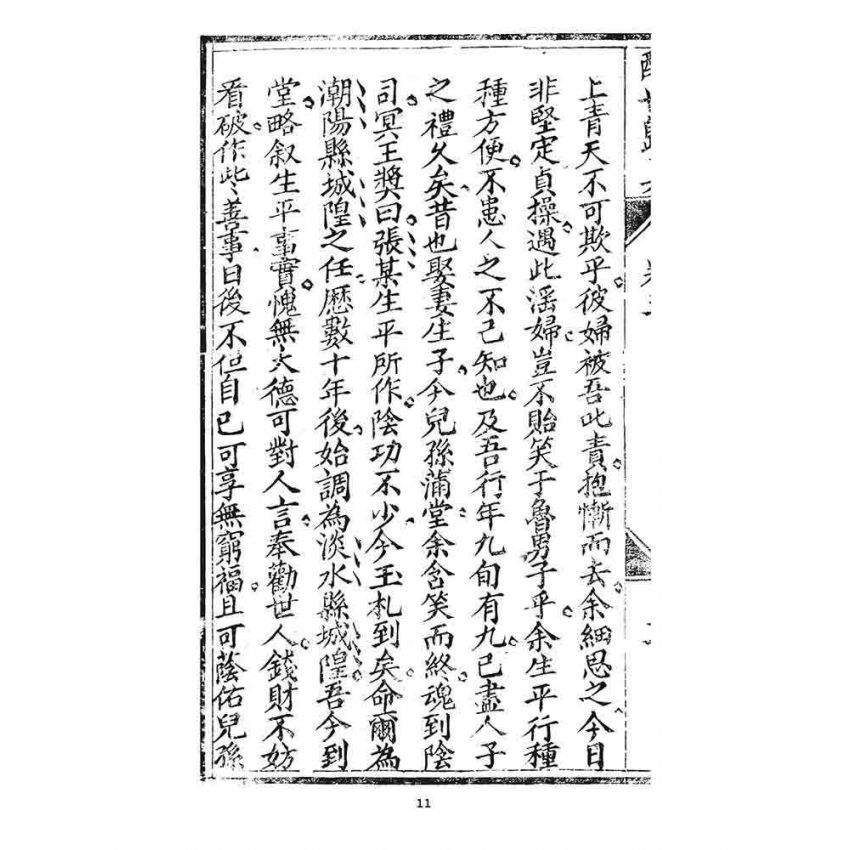 上青天不可欺乎彼婦被吾此責抱慚而去余細思之今日
非堅定貞操遇此淫婦豈不貽笑于魯男子乎余生平行種
種方便不患人之不己知也及吾行年九旬有九已盡人子
之禮久矣昔也娶妻生子今兒孫滿堂余含笑而終魂到陰
司冥王獎曰張某生平所作陰功不少今玉札到矣命爾為
潮陽縣城隍之任歷數十年後始調為淡水縣城隍吾今到
堂略叙生平事實愧無大德可對人言奉勸世人錢財不妨
看破作些善事日後不但自己可享無窮福且可蔭佑兒孫
11